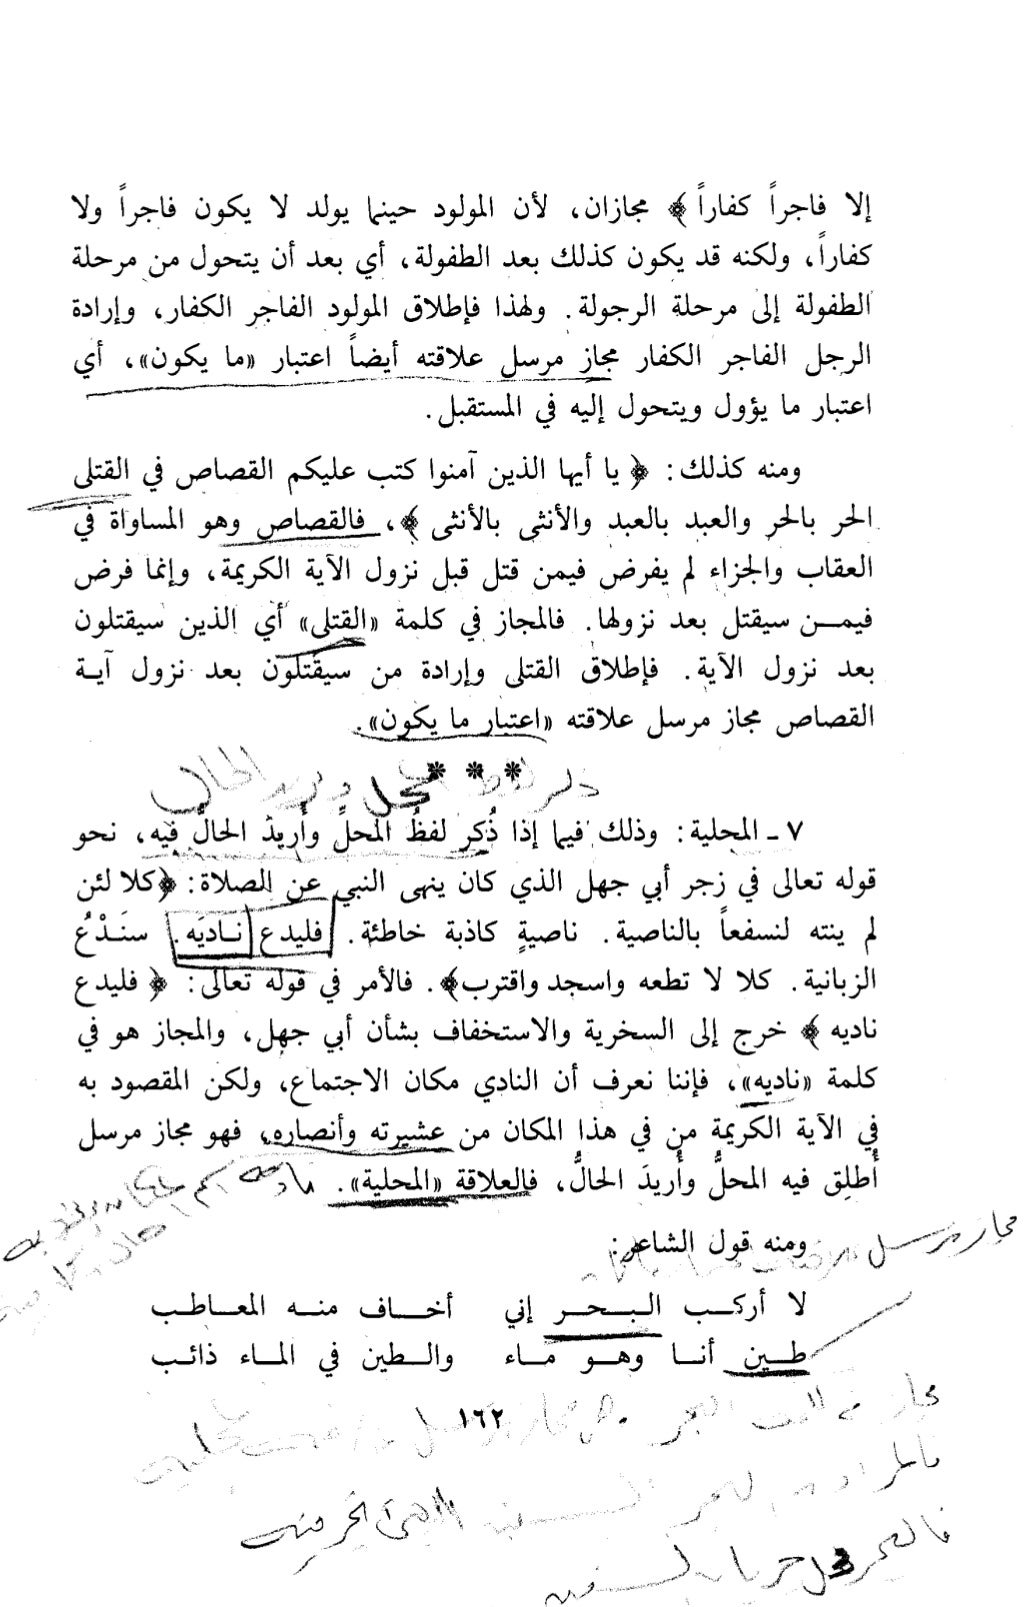 إلا فاجراً كفاراً ﴾ مجازان، لأن المولود حينما يولد لا يكون فاجراً ولا
كفاراً، ولكنه قد يكون كذلك بعد الطفولة، أي بعد أن يتحول من مرحلة
الطفولة إلى مرحلة الرجولة. ولهذا فإطلاق المولود الفاجر الكفار، وإرادة
الرجل الفاجر الكفار مجاز مرسل علاقته أيضاً اعتبار «ما يكون»، أي
اعتبار ما يؤول ويتحول إليه في المستقبل.
ومنه كذلك: ﴿ يا أيها الذين آمنوا كتب عليكم القصاص في القتلى
الحر بالحر والعبد بالعبد والأنثى بالأنثى ﴾، فالقصاص وهو المساواة في
العقاب والجزاء لم يفرض فيمن قتل قبل نزول الآية الكريمة، وإنما فرض
فيمـــن سيقتل بعد نزولها. فالمجاز في كلمة «القتلى» أي الذين سيقتلون
بعد نزول الآية. فإطلاق القتلى وإرادة من سيقتلون بعد نزول آيـة
القصاص مجاز مرسل علاقته «اعتبار ما يكون».
* * *
ويريد الحال
٧ - المحلية: وذلك فيما إذا ذُكِر لفظُ المحلِّ وأُرِيدَ الحالُّ فيه، نحو
قوله تعالى في زجر أبي جهل الذي كان ينهى النبي عن الصلاة: ﴿كلا لئن
لم ينته لنسفعاً بالناصية. ناصيةٍ كاذبة خاطئة. فليدع نـاديَه. سنَـدْعُ
الزبانية. كلا لا تطعه واسجد واقترب﴾. فالأمر في قوله تعالى: ﴿ فليدع
ناديه ﴾ خرج إلى السخرية والاستخفاف بشأن أبي جهل، والمجاز هو في
كلمة «ناديه»، فإننا نعرف أن النادي مكان الاجتماع، ولكن المقصود به
في الآية الكريمة من في هذا المكان من عشيرته وأنصاره، فهو مجاز مرسل
أُطلِق فيه المحلُّ وأُريدَ الحالُّ، فالعلاقة «المحلية».
ومنه قول الشاعر:
مجاز مرسل
لا أركـــب الـبـحـــر إني أخـــاف منـــه المعـــاطـــب
طـــين أنـــا وهـــو مـــاء والـــطين في المـــاء ذائـــب
١٦٢